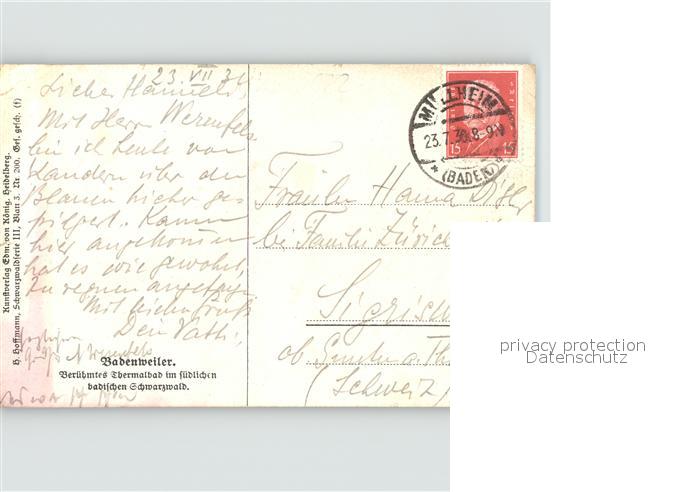 23. VII 30
Liebes Hanneli,
Mit Herrn Werenfels
bin ich heute von
Kandern über den
Blauen hieher ge-
pilgert. Kaum
hier angekommen
hat es wie gewohnt,
zu regnen angefangen
Mit lieben Gruss
Dein Vatti,
Werenfels
Badenweiler.
Berühmtes Thermalbad im südlichen
badischen Schwarzwald.
Kunstverlag Edm. von König, Heidelberg.
H. Hoffmann, Schwarzwaldserie III, Blatt 3. Nr. 200. Ges. gesch. (f)
MÜLLHEIM
23.7.30.8-9V
* (BADEN)
15 15
Fräulein Hanna
bei Familie Zürich
Sigrisw
ob Gunten a. Th
(Schweiz)
privacy protection
Datenschutz